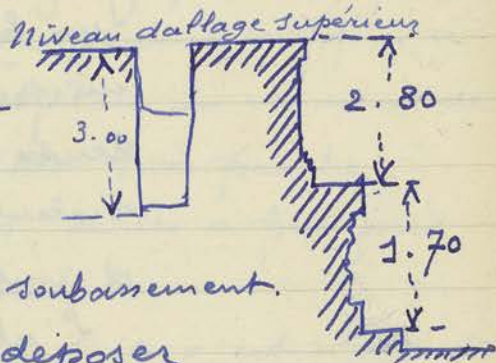 Niveau dallage supérieur
3.00
2.80
1.70
soubassement.
déposer